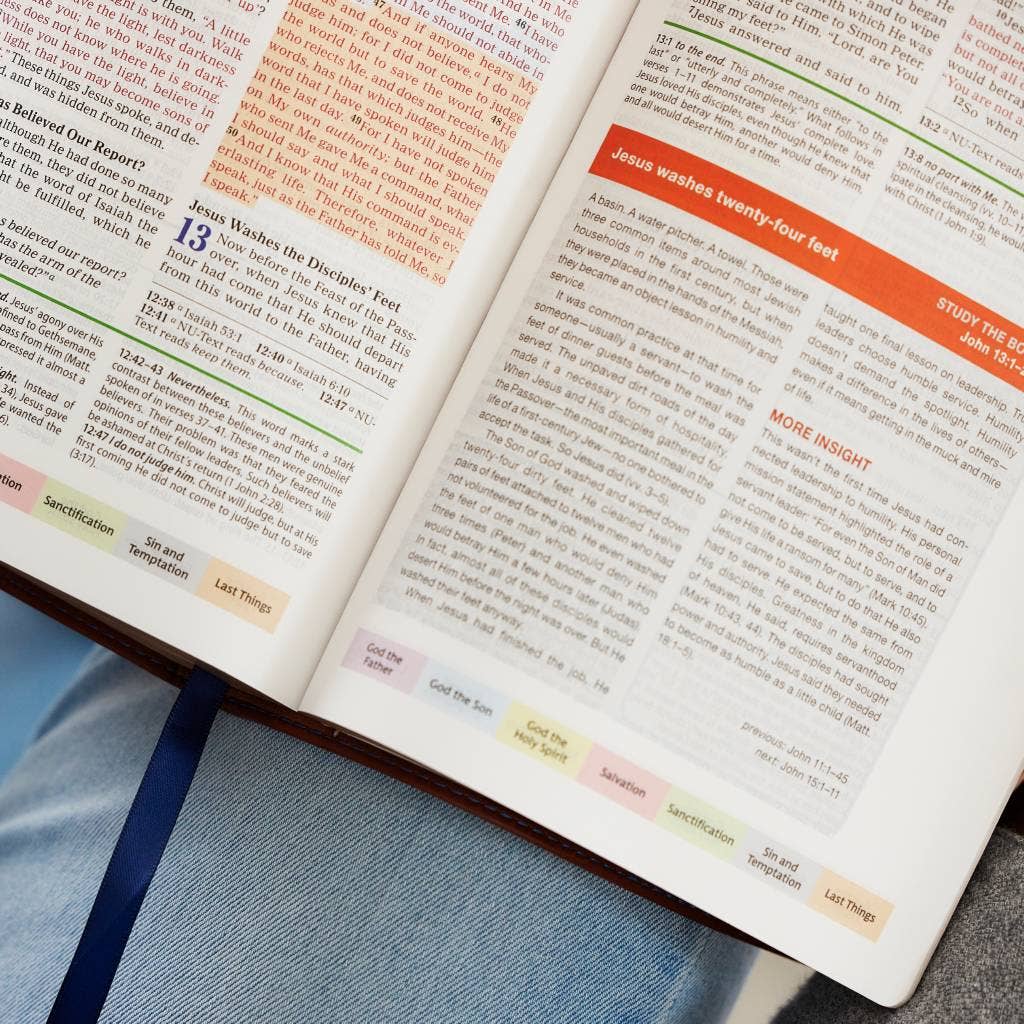 up’?
them, “A little
light is with you. Walk
the light, lest darkness
you; he who walks in dark-
does not know where he is going.
While you have the light, believe in
light, that you may become sons of
These things Jesus spoke, and de-
and was hidden from them.
Believed Our Report?
although He had done so many
them, they did not believe
that the word of Isaiah the
be fulfilled, which he
believed our report?
has the arm of the
Jesus’ agony over His
to Gethsemane.
from Him (Matt.
it almost a
Instead of
34), Jesus gave
wanted the
in Me
and he who
46 I have
the world, that who-
Me should not abide in
47 And if anyone hears My
and does not believe, I do not
judge him; for I did not come to judge
the world but to save the world. 48 He
who rejects Me, and does not receive My
words, has that which judges him—the
word that I have spoken will judge him
in the last day. 49 For I have not spoken
on My own authority; but the Father
who sent Me gave Me a command, what
I should say and what I should speak.
50 And I know that His command is ev-
erlasting life. Therefore, whatever I
speak, just as the Father has told Me, so
I speak.”
Jesus Washes the Disciples’ Feet
13 Now before the Feast of the Pass-
over, when Jesus knew that His
hour had come that He should depart
from this world to the Father, having
12:38 a Isaiah 53:1 12:40 a Isaiah 6:10
12:41 a NU-Text reads because. 12:47 a NU-
Text reads keep them.
12:42–43 Nevertheless. This word marks a stark
contrast between these believers and the unbelief
spoken of in verses 37–41. These men were genuine
believers. Their problem was that they feared the
opinions of their fellow leaders. Such believers will
be ashamed at Christ’s return (1 John 2:28).
12:47 I do not judge him. Christ will judge, but at His
first coming He did not come to judge but to save
(3:17).
Sanctification
Sin and
Temptation
Last Things
and began
and to wipe
with which He was
He came to Simon Peter.
said to Him, “Lord, are You
my feet?”
Jesus answered and said to him,
13:1 to the end. This phrase means either “to the
last” or “utterly and completely.” What follows in
verses 1–11 demonstrates Jesus’ complete love.
Jesus loved His disciples, even though He knew that
one would betray Him, another would deny Him,
and all would desert Him for a time.
10 Jesus
bathed
is complet
but not all
“You are not a
12 So when
13:2 a NU-Text reads
13:8 no part with Me. The
spiritual cleansing (vv. 10–
pate in the cleansing, he
with Christ (1 John 1:9).
Jesus washes twenty-four feet
STUDY THE
John 13:1–
A basin. A water pitcher. A towel. Those were
three common items around most Jewish
households in the first century, but when
they were placed in the hands of the Messiah,
they became an object lesson in humility and
service.
It was common practice at that time for
someone—usually a servant—to wash the
feet of dinner guests before the meal was
served. The unpaved dirt roads of the day
made it a necessary form of hospitality.
When Jesus and His disciples gathered for
the Passover—the most important meal in the
life of a first-century Jew—no one bothered to
accept the task. So Jesus did (vv. 3–5).
The Son of God washed and wiped down
twenty-four dirty feet. He cleaned twelve
pairs of feet attached to twelve men who had
not volunteered for the job. He even washed
the feet of one man who would deny Him
three times (Peter) and another man who
would betray Him a few hours later (Judas).
In fact, almost all of these disciples would
desert Him before the night was over. But He
washed their feet anyway.
When Jesus had finished the job, He
taught one final lesson on leadership. True
leaders choose humble service. Humility
doesn’t demand the spotlight. Humility
makes a difference in the lives of others—
even if it means getting in the muck and mire
of life.
MORE INSIGHT
This wasn’t the first time Jesus had con-
nected leadership to humility. His personal
mission statement highlighted the role of a
servant leader: “For even the Son of Man did
not come to be served, but to serve, and to
give His life a ransom for many” (Mark 10:45).
Jesus came to save, but to do that He also
had to serve. He expected the same from
His disciples. Greatness in the kingdom
of heaven, He said, requires servanthood
(Mark 10:43, 44). The disciples had sought
power and authority. Jesus said they needed
to become as humble as a little child (Matt.
18:1–5).
previous: John 11:1–45
next: John 15:1–11
God the
Father
God the Son
God the
Holy Spirit
Salvation
Sanctification
Sin and
Temptation
Last Things